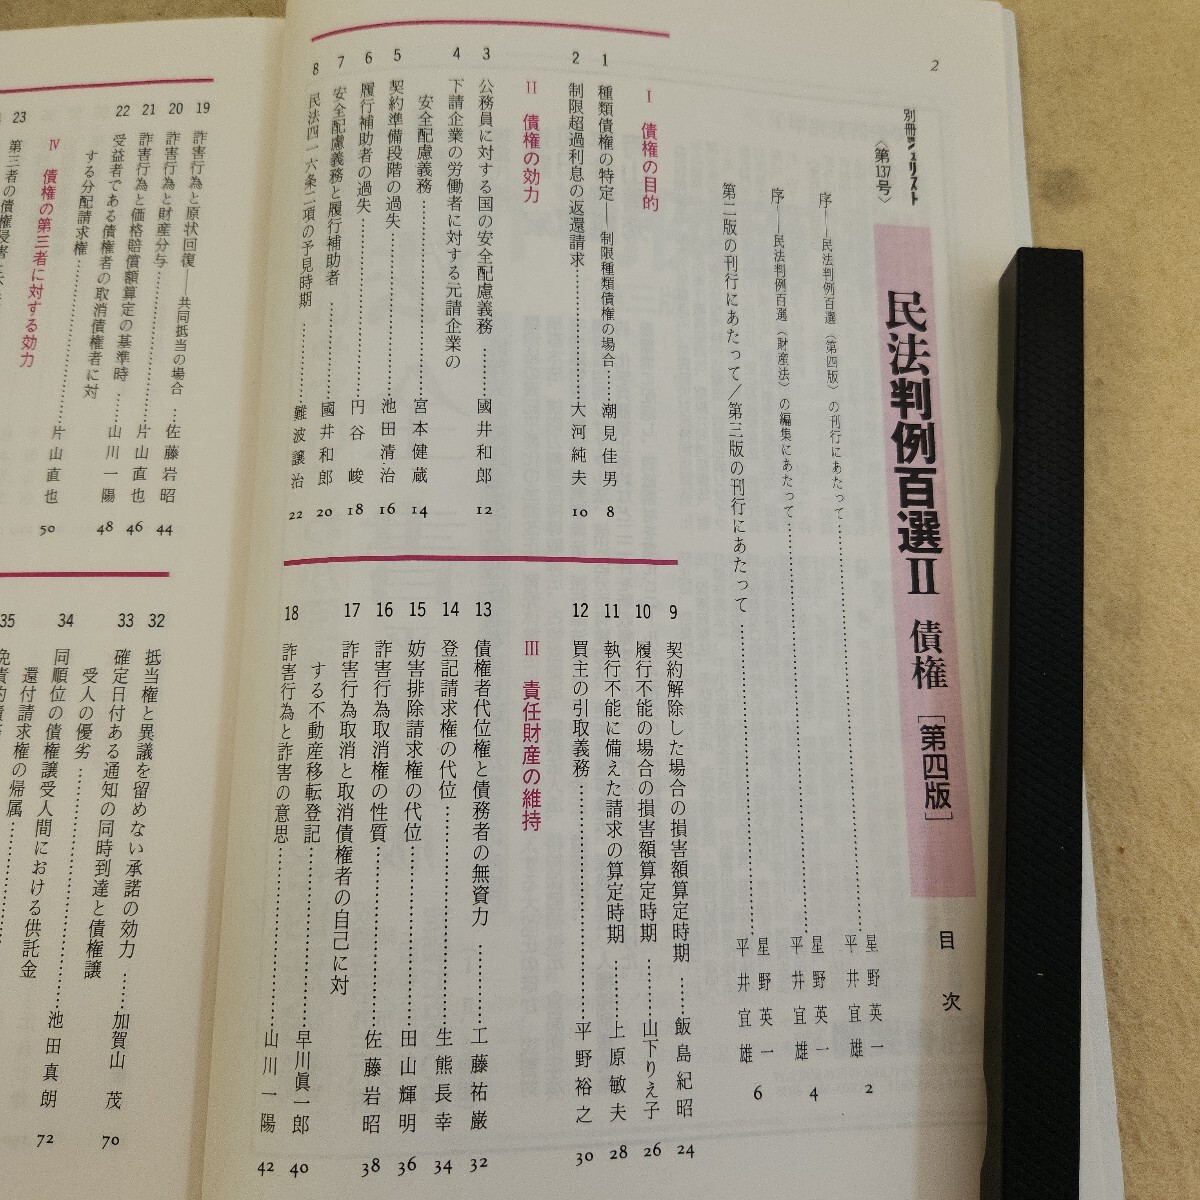 2
別冊ジュリスト
〈第137号〉
民法判例百選Ⅱ 債権［第四版］
目 次
序——民法判例百選（第四版）の刊行にあたって……星野英一 平井宜雄 2
序——民法判例百選（財産法）の編集にあたって……星野英一 平井宜雄 4
第二版の刊行にあたって／第三版の刊行にあたって……星野英一 平井宜雄 6
Ⅰ 債権の目的
1 種類債権の特定——制限種類債権の場合……潮見佳男 8
2 制限超過利息の返還請求……大河純夫 10
Ⅱ 債権の効力
3 公務員に対する国の安全配慮義務……國井和郎 12
4 下請企業の労働者に対する元請企業の
安全配慮義務……宮本健蔵 14
5 契約準備段階の過失……池田清治 16
6 履行補助者の過失……円谷峻 18
7 安全配慮義務と履行補助者……國井和郎 20
8 民法四一六条二項の予見時期……難波譲治 22
9 契約解除した場合の損害額算定時期……飯島紀昭 24
10 履行不能の場合の損害額算定時期……山下りえ子 26
11 執行不能に備えた請求の算定時期……上原敏夫 28
12 買主の引取義務……平野裕之 30
Ⅲ 責任財産の維持
13 債権者代位権と債務者の無資力……工藤祐巌 32
14 登記請求権の代位……生熊長幸 34
15 妨害排除請求権の代位……田山輝明 36
16 詐害行為取消権の性質……佐藤岩昭 38
17 詐害行為取消と取消債権者の自己に対
する不動産移転登記……早川眞一郎 40
18 詐害行為と詐害の意思……山川一陽 42
19 詐害行為と原状回復——共同抵当の場合……佐藤岩昭 44
20 詐害行為と財産分与……片山直也 46
21 詐害行為と価格賠償額算定の基準時……山川一陽 48
22 受益者である債権者の取消債権者に対
する分配請求権……片山直也 50
Ⅳ 債権の第三者に対する効力
23 第三者の債権侵害
32 抵当権と異議を留めない承諾の効力……加賀山茂 70
33 確定日付ある通知の同時到達と債権譲
受人の優劣……池田真朗 72
34 同順位の債権譲受人間における供託金
還付請求権の帰属……
35 免責的債